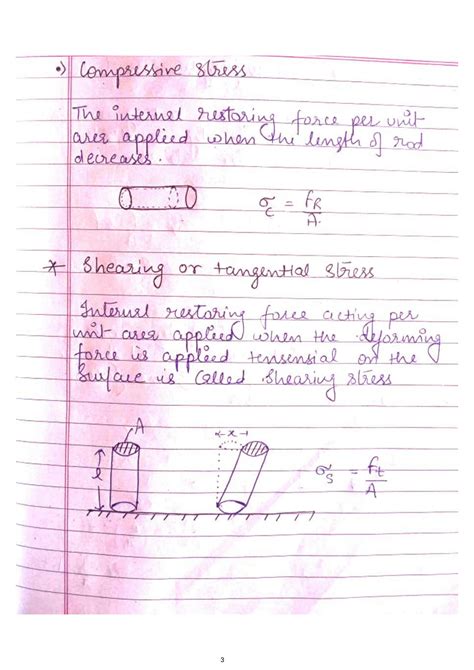 •) Compressive Stress
The internal restoring force per unit
area applied when the length of rod
decreases.
σc = fR/A
* Shearing or tangential Stress
Internal restoring force acting per
unit area applied when the deforming
force is applied tensensial on the
Surface is Called Shearing Stress
A
←x→
l
σs = ft/A
3